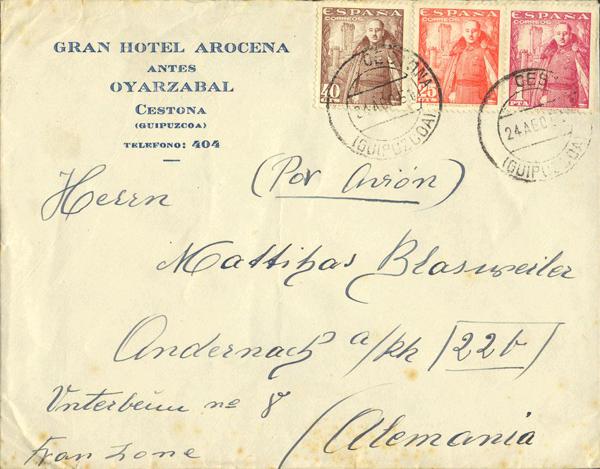 GRAN HOTEL AROCENA
ANTES
OYARZABAL
CESTONA
(GUIPUZCOA)
TELEFONO: 404
ESPAÑA
CORREOS
40
ESPAÑA
CORREOS
25
ESPAÑA
CORREOS
1
PTA
CESTONA
24 AGO
(GUIPUZCOA)
CES
24 AGO
(GUIPUZCOA)
(Por Avión)
Herrn
Mattihas Blasweiler
Andernach a/Rh 22b
Unterbeun nº 8
(Alemania
Fran Zone